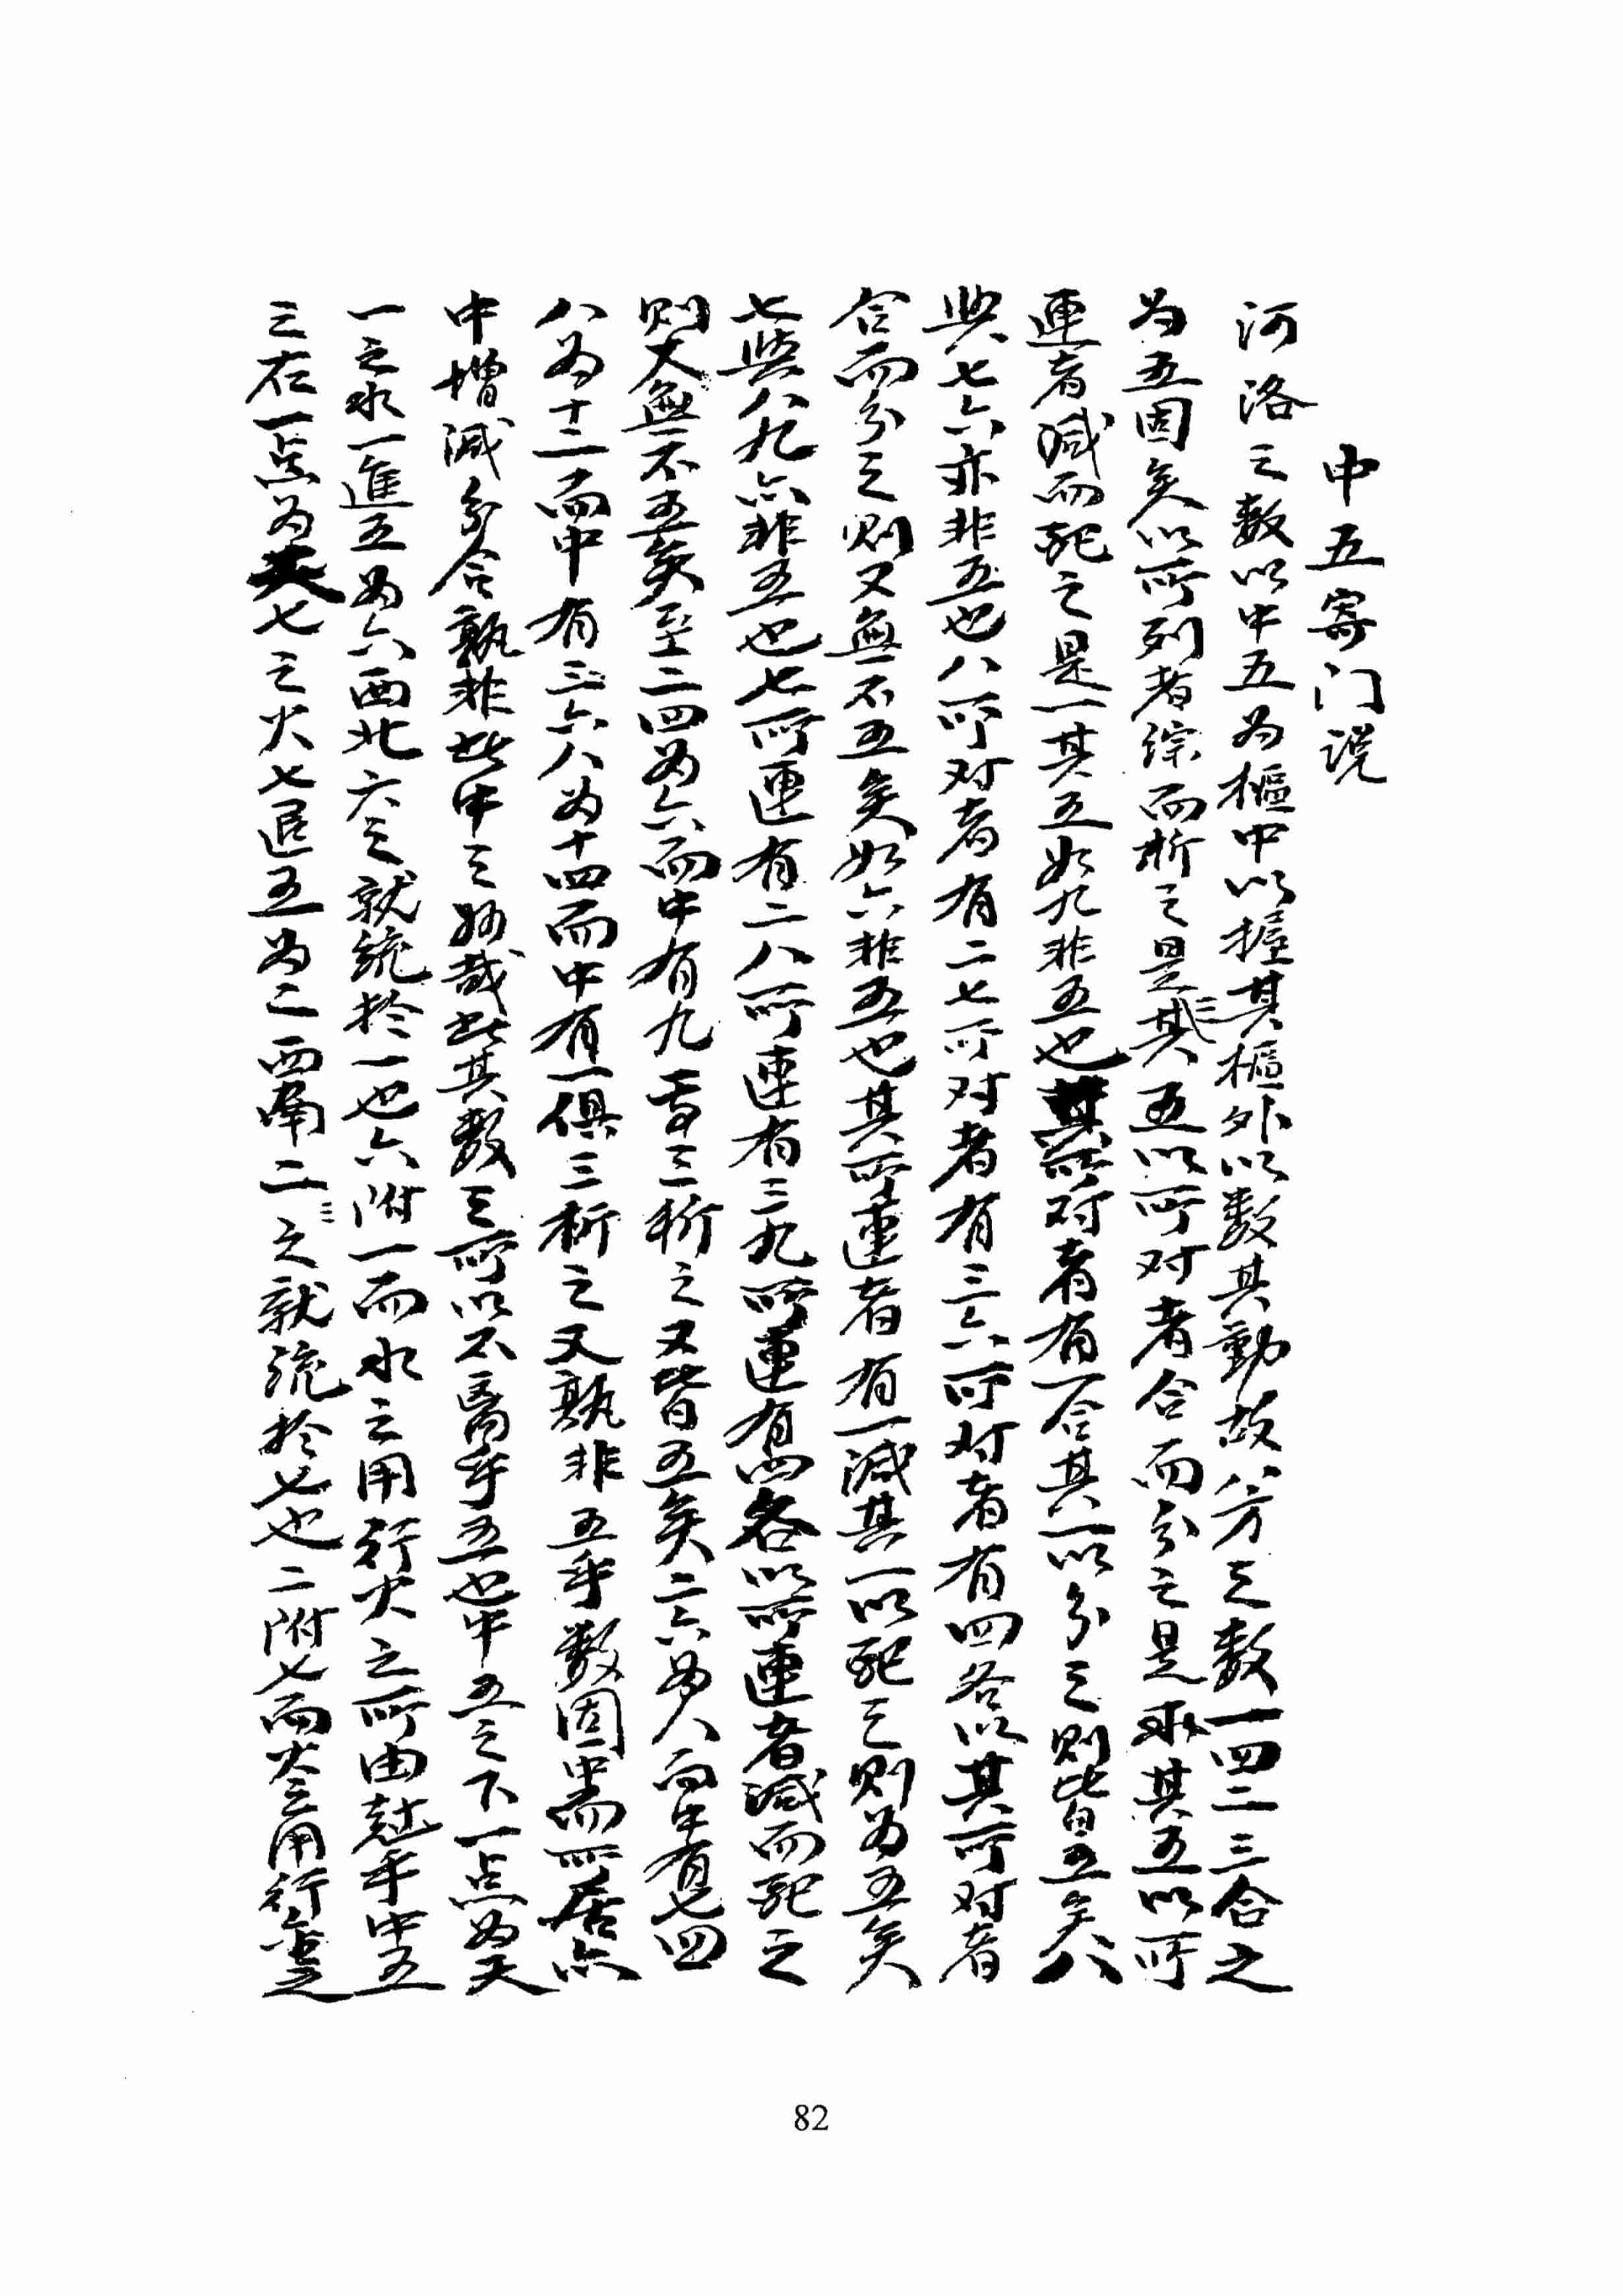 中五寄门说
河洛之数以中五为樞中以握其樞外以数其動故八方之数一四二三合之
为五固矣以所列者综而析之是其五以所对者合而分之是亦其五以所
連者減而配之是一其五如九非五也其所对者有一合其一以分之則皆五矣八
與七六亦非五也八所对者有二七所对者有三六所对者有四各以其所对者
合而分之則又無不五矣如六非五也其所連者有一減其一以配之則为五矣
七與八九亦非五也七所連有二八所連有三九所連有四各以所連者減而配之
則又無不五矣至二四为六而中有九以三析之又皆五矣二六为八而中有七四
八为十二而中有三六八为十四而中有一俱三析之又孰非五乎数固中而所居亦
中增減分合孰非此中之妙哉此其数之所以不离乎五也中五之下一点为天
一之水一進五为六西北六之就統於一也六附一而水之用行火之所由起乎中五
之右一点为天七之火七退五为二西南二之就統於七也二附七而火之用行金之
82